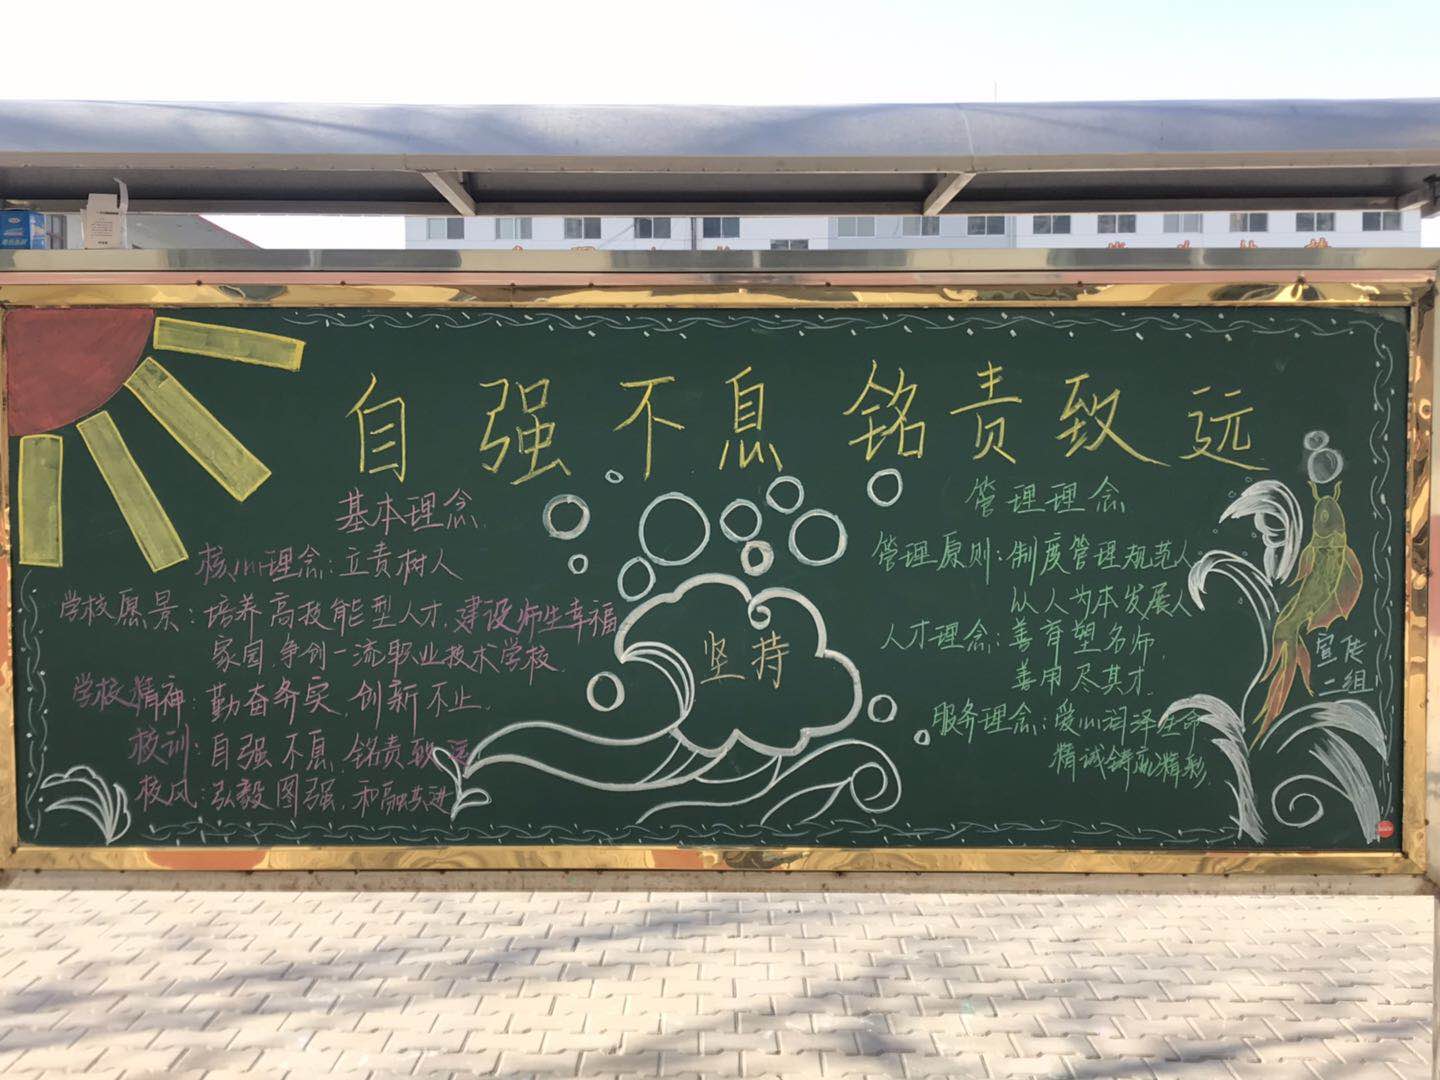 自强不息 铭责致远
基本理念
核心理念：立责树人
学校愿景：培养高技能型人才，建设师生幸福
家园，争创一流职业技术学校
学校精神：勤奋务实，创新不止
校训：自强不息，铭责致远
校风：弘毅图强，和融共进
坚持
管理理念
管理原则：制度管理规范人
以人为本发展人
人才理念：善育塑名师，
善用尽其才
服务理念：爱心润泽生命
精诚铸就精彩
宣传
二组